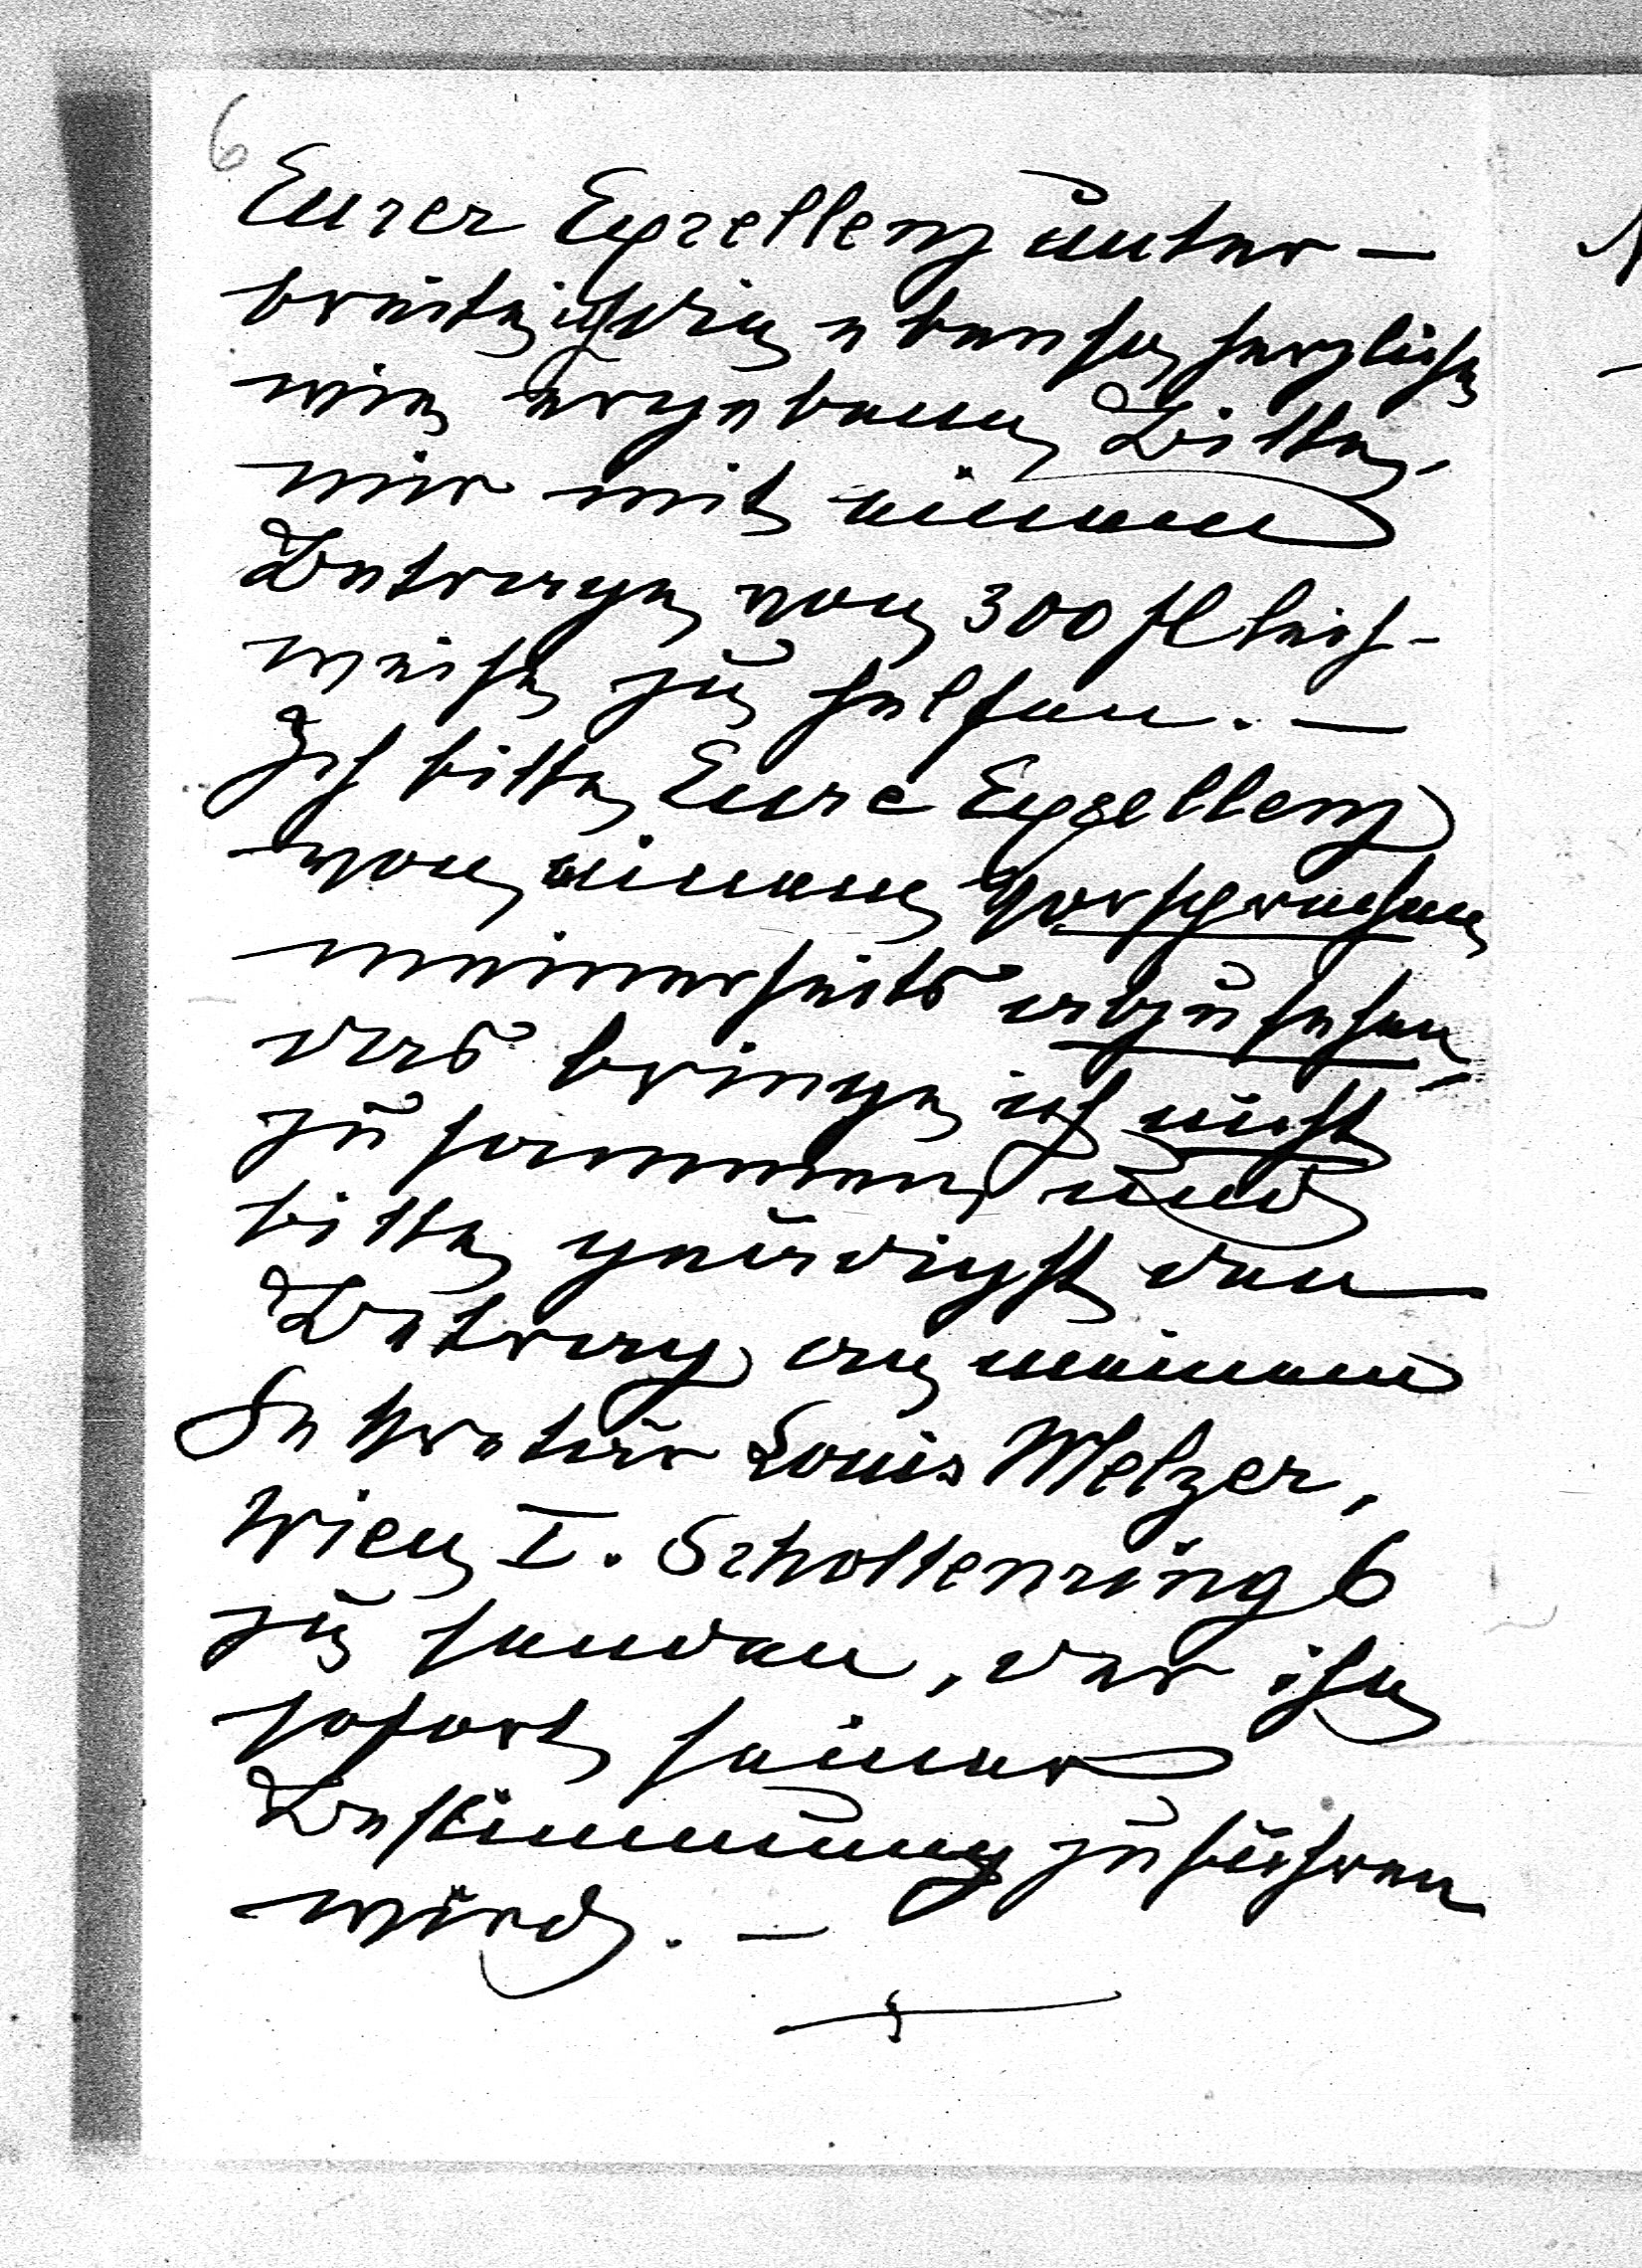 6
Eurer Exzellenz unter-
breite ich die ebenso herzliche
wie ergebene Bitte,
mir mit einem
Betrage von 300 fl leih-
weise zu helfen. —
Ich bitte Eure Exzellenz
von einem Vorsprechen
meinerseits abzusehen,
das bringe ich nicht
zusammen und
bitte gnädigst den
Betrag an meinen
Sekretär Louis Melzer,
Wien I. Schottenring 6
zu senden, der ihn
sofort seiner
Bestimmung zuführen
wird. —